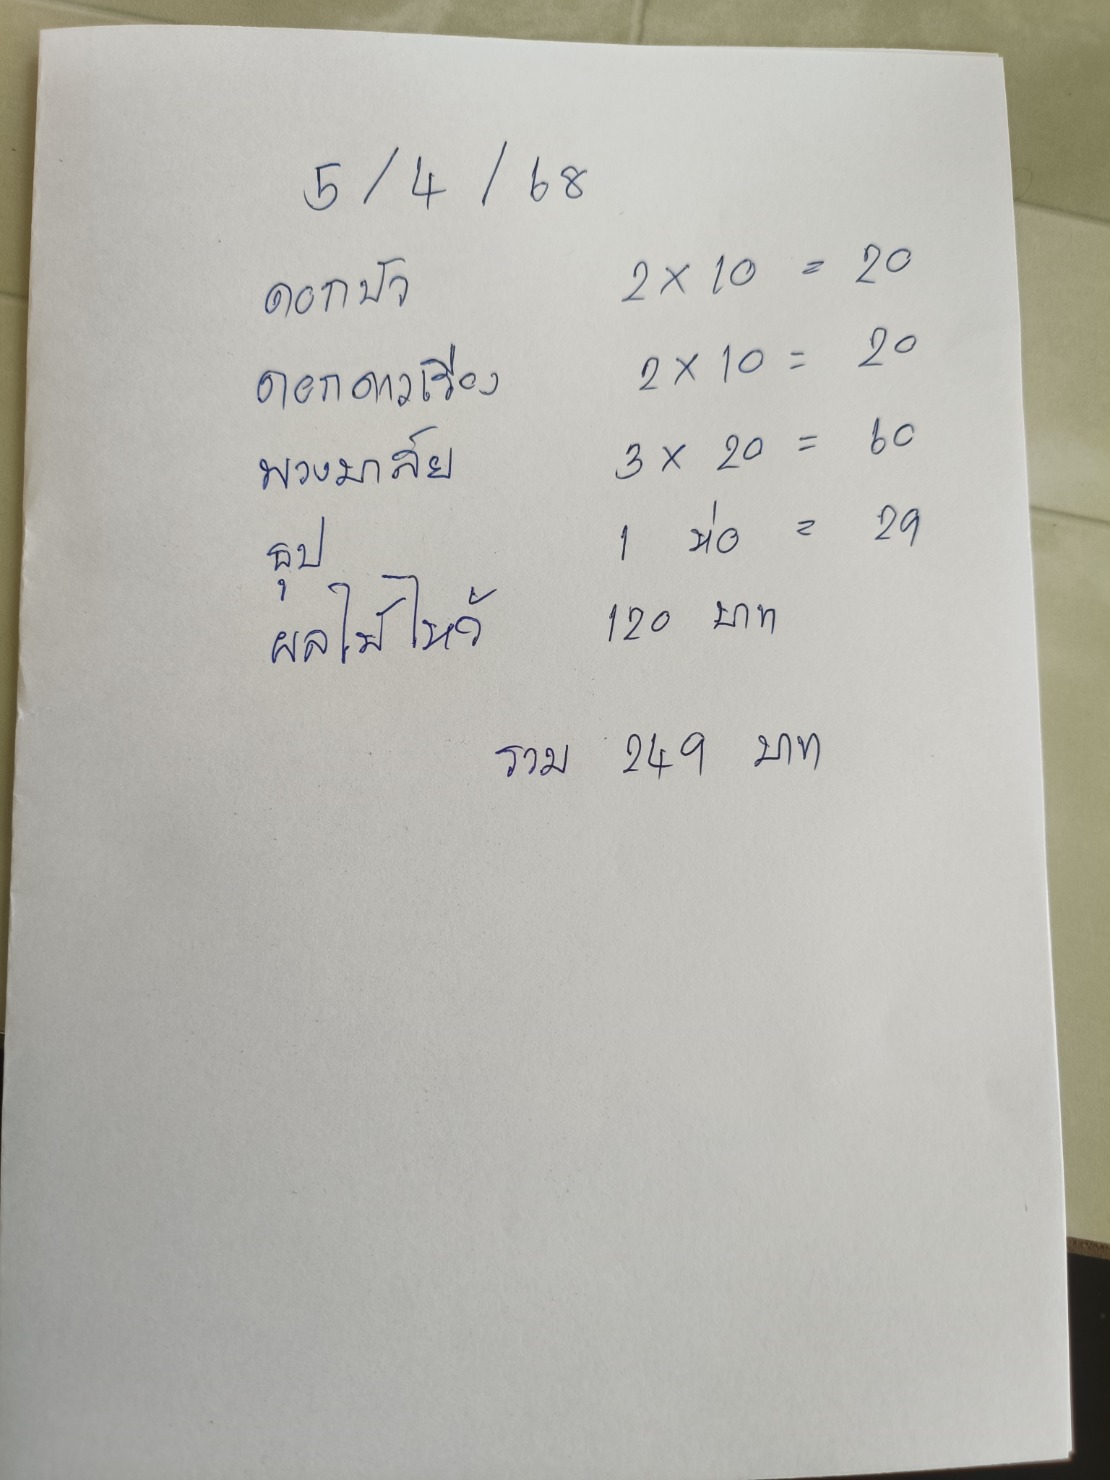 5/4/68
ดอกบัว 2 x 10 = 20
ดอกดาวเรือง 2 x 10 = 20
พวงมาลัย 3 x 20 = 60
ธูป 1 ห่อ = 29
ผลไม้ไหว้ 120 บาท
รวม 249 บาท